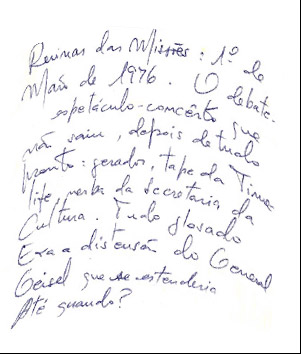 Ruinas das Missões: 1º de
Maio de 1976. O debate-
espetáculo-concêrto que
não saiu, depois de tudo
pronto: gerador, tape da Time
life, verba da secretaria da
Cultura. Tudo glosado
Era a distensão do General
Geisel que se estenderia
Até quando?